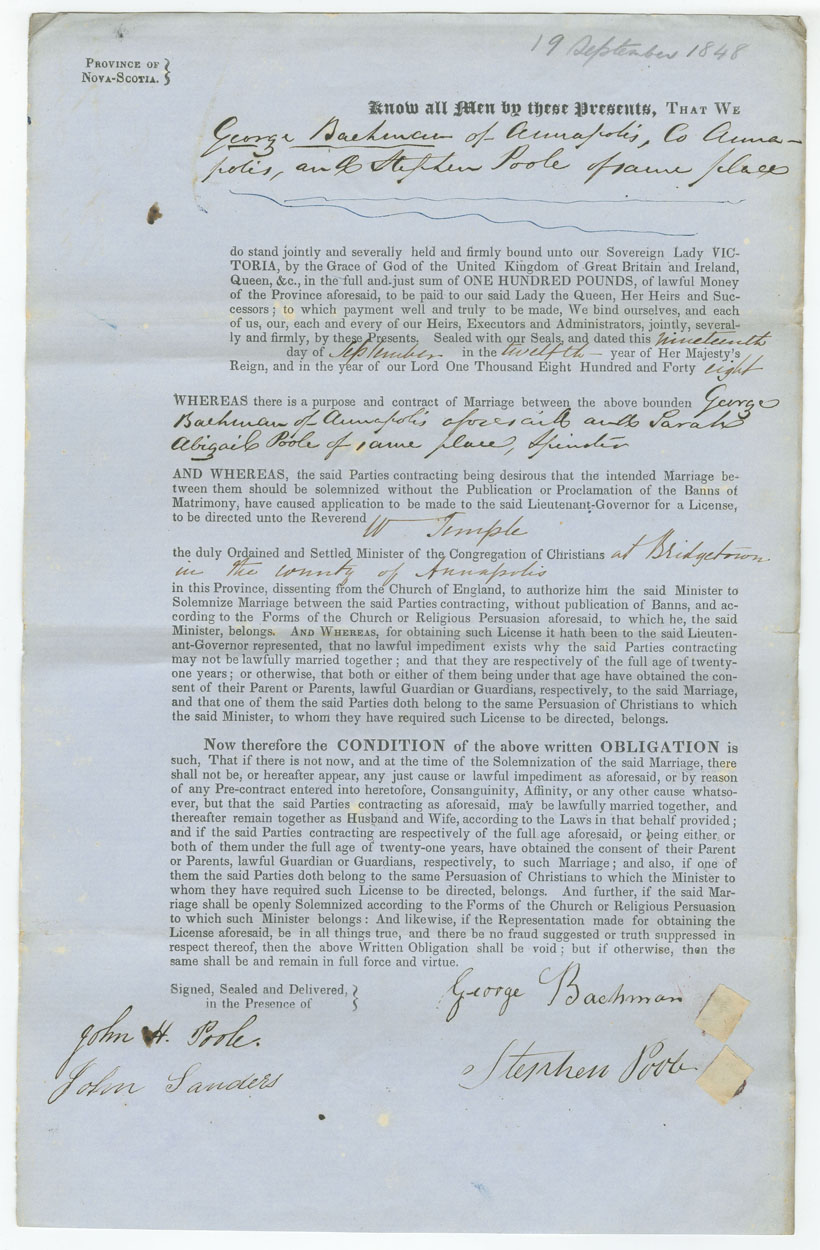 19 September 1848
PROVINCE OF
NOVA-SCOTIA.
Know all Men by these Presents, THAT WE
George Bachman of Annapolis, Co Anna-
polis, and Stephen Poole of same place
do stand jointly and severally held and firmly bound unto our Sovereign Lady VIC-
TORIA, by the Grace of God of the United Kingdom of Great Britain and Ireland,
Queen, &c., in the full and just sum of ONE HUNDRED POUNDS, of lawful Money
of the Province aforesaid, to be paid to our said Lady the Queen, Her Heirs and Suc-
cessors; to which payment well and truly to be made, We bind ourselves, and each
of us, our, each and every of our Heirs, Executors and Administrators, jointly, several-
ly and firmly, by these Presents. Sealed with our Seals, and dated this nineteenth
day of September in the twelfth — year of Her Majesty's
Reign, and in the year of our Lord One Thousand Eight Hundred and Forty eight
WHEREAS there is a purpose and contract of Marriage between the above bounden George
Bachman of Annapolis aforesaid and Sarah
Abigail Poole of same place, Spinster
AND WHEREAS, the said Parties contracting being desirous that the intended Marriage be-
tween them should be solemnized without the Publication or Proclamation of the Banns of
Matrimony, have caused application to be made to the said Lieutenant-Governor for a License,
to be directed unto the Reverend W Temple
the duly Ordained and Settled Minister of the Congregation of Christians at Bridgetown
in the county of Annapolis
in this Province, dissenting from the Church of England, to authorize him the said Minister to
Solemnize Marriage between the said Parties contracting, without publication of Banns, and ac-
cording to the Forms of the Church or Religious Persuasion aforesaid, to which he, the said
Minister, belongs. AND WHEREAS, for obtaining such License it hath been to the said Lieuten-
ant-Governor represented, that no lawful impediment exists why the said Parties contracting
may not be lawfully married together; and that they are respectively of the full age of twenty-
one years; or otherwise, that both or either of them being under that age have obtained the con-
sent of their Parent or Parents, lawful Guardian or Guardians, respectively, to the said Marriage,
and that one of them the said Parties doth belong to the same Persuasion of Christians to which
the said Minister, to whom they have required such License to be directed, belongs.
Now therefore the CONDITION of the above written OBLIGATION is
such, That if there is not now, and at the time of the Solemnization of the said Marriage, there
shall not be, or hereafter appear, any just cause or lawful impediment as aforesaid, or by reason
of any Pre-contract entered into heretofore, Consanguinity, Affinity, or any other cause whatso-
ever, but that the said Parties contracting as aforesaid, may be lawfully married together, and
thereafter remain together as Husband and Wife, according to the Laws in that behalf provided;
and if the said Parties contracting are respectively of the full age aforesaid, or being either or
both of them under the full age of twenty-one years, have obtained the consent of their Parent
or Parents, lawful Guardian or Guardians, respectively, to such Marriage; and also, if one of
them the said Parties doth belong to the same Persuasion of Christians to which the Minister to
whom they have required such License to be directed, belongs. And further, if the said Mar-
riage shall be openly Solemnized according to the Forms of the Church or Religious Persuasion
to which such Minister belongs: And likewise, if the Representation made for obtaining the
License aforesaid, be in all things true, and there be no fraud suggested or truth suppressed in
respect thereof, then the above Written Obligation shall be void; but if otherwise, then the
same shall be and remain in full force and virtue.
Signed, Sealed and Delivered,
in the Presence of
George Bachman
John H. Poole.
Stephen Poole
John Sanders